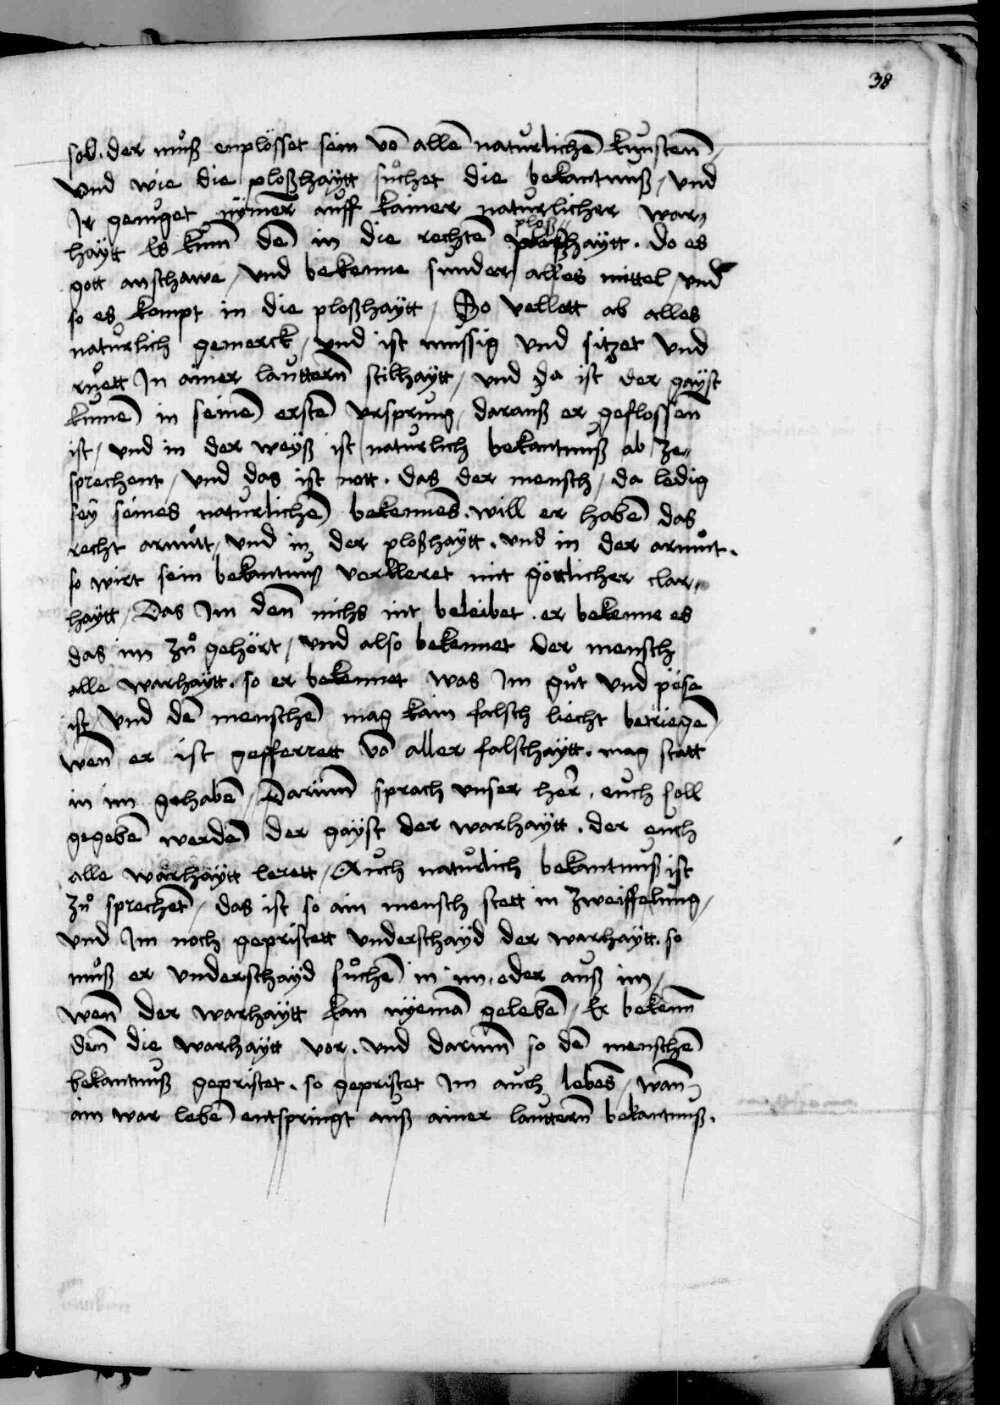 38
sol. der můß enplösset sein vō allē natůrlichē kunstenn /
Vnd wie die ploßhaÿtt sůchet die bekantnuß / vnd
Ir genuget nÿmer auff kainer natůrlicher war
haÿtt Es kum̄ dē in die rechten ploß ploßhaÿtt. do es
gott anschawe / vnd bekenne sunder alles mittel / vnd
so es kompt in die ploßhaÿtt / So vellett ab alles
natůrlich gemerck / vnd ist mussig vnd sitzet vnd
růett In ainer lauttern̄ stilhaÿtt / vnd da ist der gaÿst
kumē in seinē erstē vrsprung / darauß er geflossen
ist / vnd in der weÿß ist natůrlich bekantnuß ab ze
sprechent / vnd das ist nott. das der mensch / da ledig
seÿ seines naturlichē bekennes. will er habē das
recht armůtt / vnd in der ploßhaÿtt. vnd in der armůt.
so wirt sein bekantnuß verkleret mit göttlicher clar
haÿtt / Das Im den̄ nichs nit beleibet. er bekenne es
das im zů gehört / vnd also bekennet der mensch
alle warhaÿtt. so er bekennet was Im gůt vnd pöse
ist / vnd dē menschē mag kain falsch liecht betriegē
wen̄ er ist gefferrett vō aller falschaÿtt. mag statt
in im gehabē / Darum̄ sprach vnser her̄. euch soll
gegebē werdē der gaÿst der warhaÿtt. der euch
alle warhaÿtt lerett / Auch natůrlich bekantnuß ist
zů sprechēt / das ist so ain mensch stett in zweiffelung /
vnd Im noch gepristett vnderschaÿd der warhaÿtt. so
můß er vnderschaÿd sůchē in im. oder auß im /
wen̄ der warhaÿtt kan nÿemā gelebē / Er bekenn̄
den̄ die warhaÿtt vor. vnd darum̄ so dē menschē
bekantnuß gepristet. so gepristet Im auch lebēs / wan̄
ain war lebē entspringt auß ainer lauttern̄ bekantnuß.